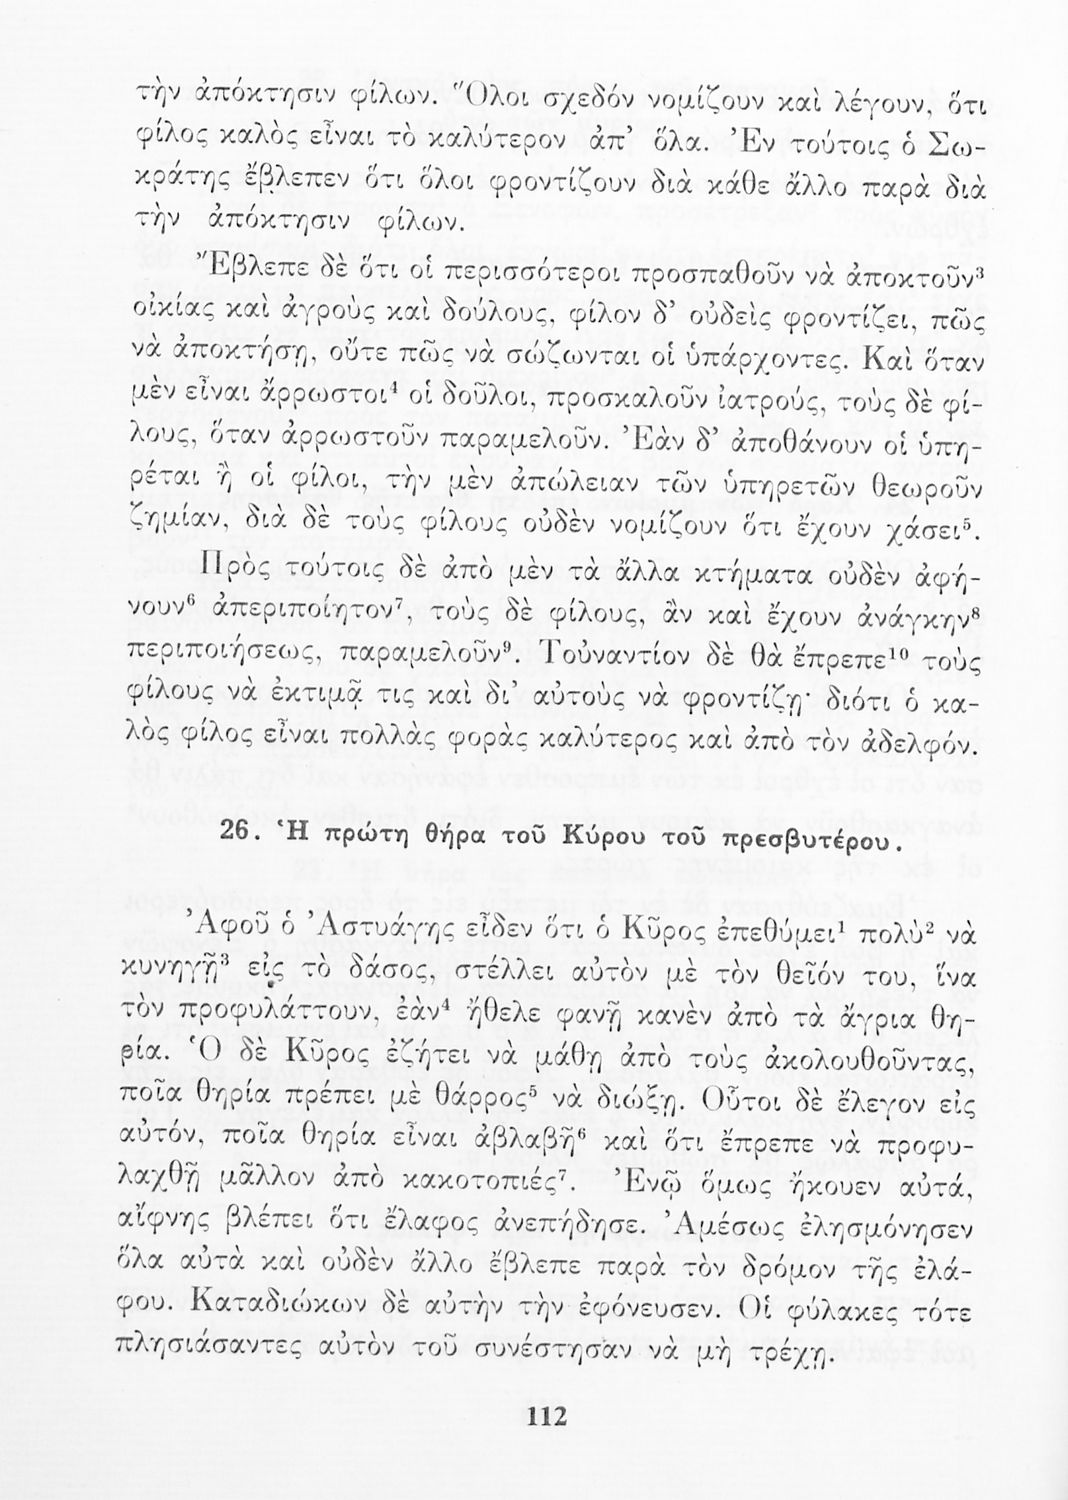 τὴν ἀπόκτησιν φίλων. Ὅλοι σχεδόν νομίζουν καὶ λέγουν, ὅτι
φίλος καλὸς εἶναι τὸ καλύτερον ἀπ’ ὅλα. Ἐν τούτοις ὁ Σω-
κράτης ἔβλεπεν ὅτι ὅλοι φροντίζουν διὰ κάθε ἄλλο παρὰ διὰ
τὴν ἀπόκτησιν φίλων.
Ἔβλεπε δὲ ὅτι οἱ περισσότεροι προσπαθοῦν νὰ ἀποκτοῦν³
οἰκίας καὶ ἀγροὺς καὶ δούλους, φίλον δ’ οὐδεὶς φροντίζει, πῶς
νὰ ἀποκτήσῃ, οὔτε πῶς νὰ σώζωνται οἱ ὑπάρχοντες. Καὶ ὅταν
μὲν εἶναι ἄρρωστοι⁴ οἱ δοῦλοι, προσκαλοῦν ἰατρούς, τοὺς δὲ φί-
λους, ὅταν ἀρρωστοῦν παραμελοῦν. Ἐὰν δ’ ἀποθάνουν οἱ ὑπη-
ρέται ἢ οἱ φίλοι, τὴν μὲν ἀπώλειαν τῶν ὑπηρετῶν θεωροῦν
ζημίαν, διὰ δὲ τοὺς φίλους οὐδὲν νομίζουν ὅτι ἔχουν χάσει⁵.
Πρὸς τούτοις δὲ ἀπὸ μὲν τὰ ἄλλα κτήματα οὐδὲν ἀφή-
νουν⁶ ἀπεριποίητον⁷, τοὺς δὲ φίλους, ἂν καὶ ἔχουν ἀνάγκην⁸
περιποιήσεως, παραμελοῦν⁹. Τοὐναντίον δὲ θὰ ἔπρεπε¹⁰ τοὺς
φίλους νὰ ἐκτιμᾷ τις καὶ δι’ αὐτοὺς νὰ φροντίζῃ· διότι ὁ κα-
λὸς φίλος εἶναι πολλὰς φορὰς καλύτερος καὶ ἀπὸ τὸν ἀδελφόν.
26. Ἡ πρώτη θήρα τοῦ Κύρου τοῦ πρεσβυτέρου.
Ἀφοῦ ὁ Ἀστυάγης εἶδεν ὅτι ὁ Κῦρος ἐπεθύμει¹ πολὺ² νὰ
κυνηγῇ³ εἰς τὸ δάσος, στέλλει αὐτὸν μὲ τὸν θεῖόν του, ἵνα
τὸν προφυλάττουν, ἐὰν⁴ ἤθελε φανῇ κανὲν ἀπὸ τὰ ἄγρια θη-
ρία. Ὁ δὲ Κῦρος ἐζήτει νὰ μάθῃ ἀπὸ τοὺς ἀκολουθοῦντας,
ποῖα θηρία πρέπει μὲ θάρρος⁵ νὰ διώξῃ. Οὗτοι δὲ ἔλεγον εἰς
αὐτόν, ποῖα θηρία εἶναι ἀβλαβῆ⁶ καὶ ὅτι ἔπρεπε νὰ προφυ-
λαχθῇ μᾶλλον ἀπὸ κακοτοπιές⁷. Ἐνῷ ὅμως ἤκουεν αὐτά,
αἴφνης βλέπει ὅτι ἔλαφος ἀνεπήδησε. Ἀμέσως ἐλησμόνησεν
ὅλα αὐτὰ καὶ οὐδὲν ἄλλο ἔβλεπε παρὰ τὸν δρόμον τῆς ἐλά-
φου. Καταδιώκων δὲ αὐτὴν τὴν ἐφόνευσεν. Οἱ φύλακες τότε
πλησιάσαντες αὐτὸν τοῦ συνέστησαν νὰ μὴ τρέχῃ.
112